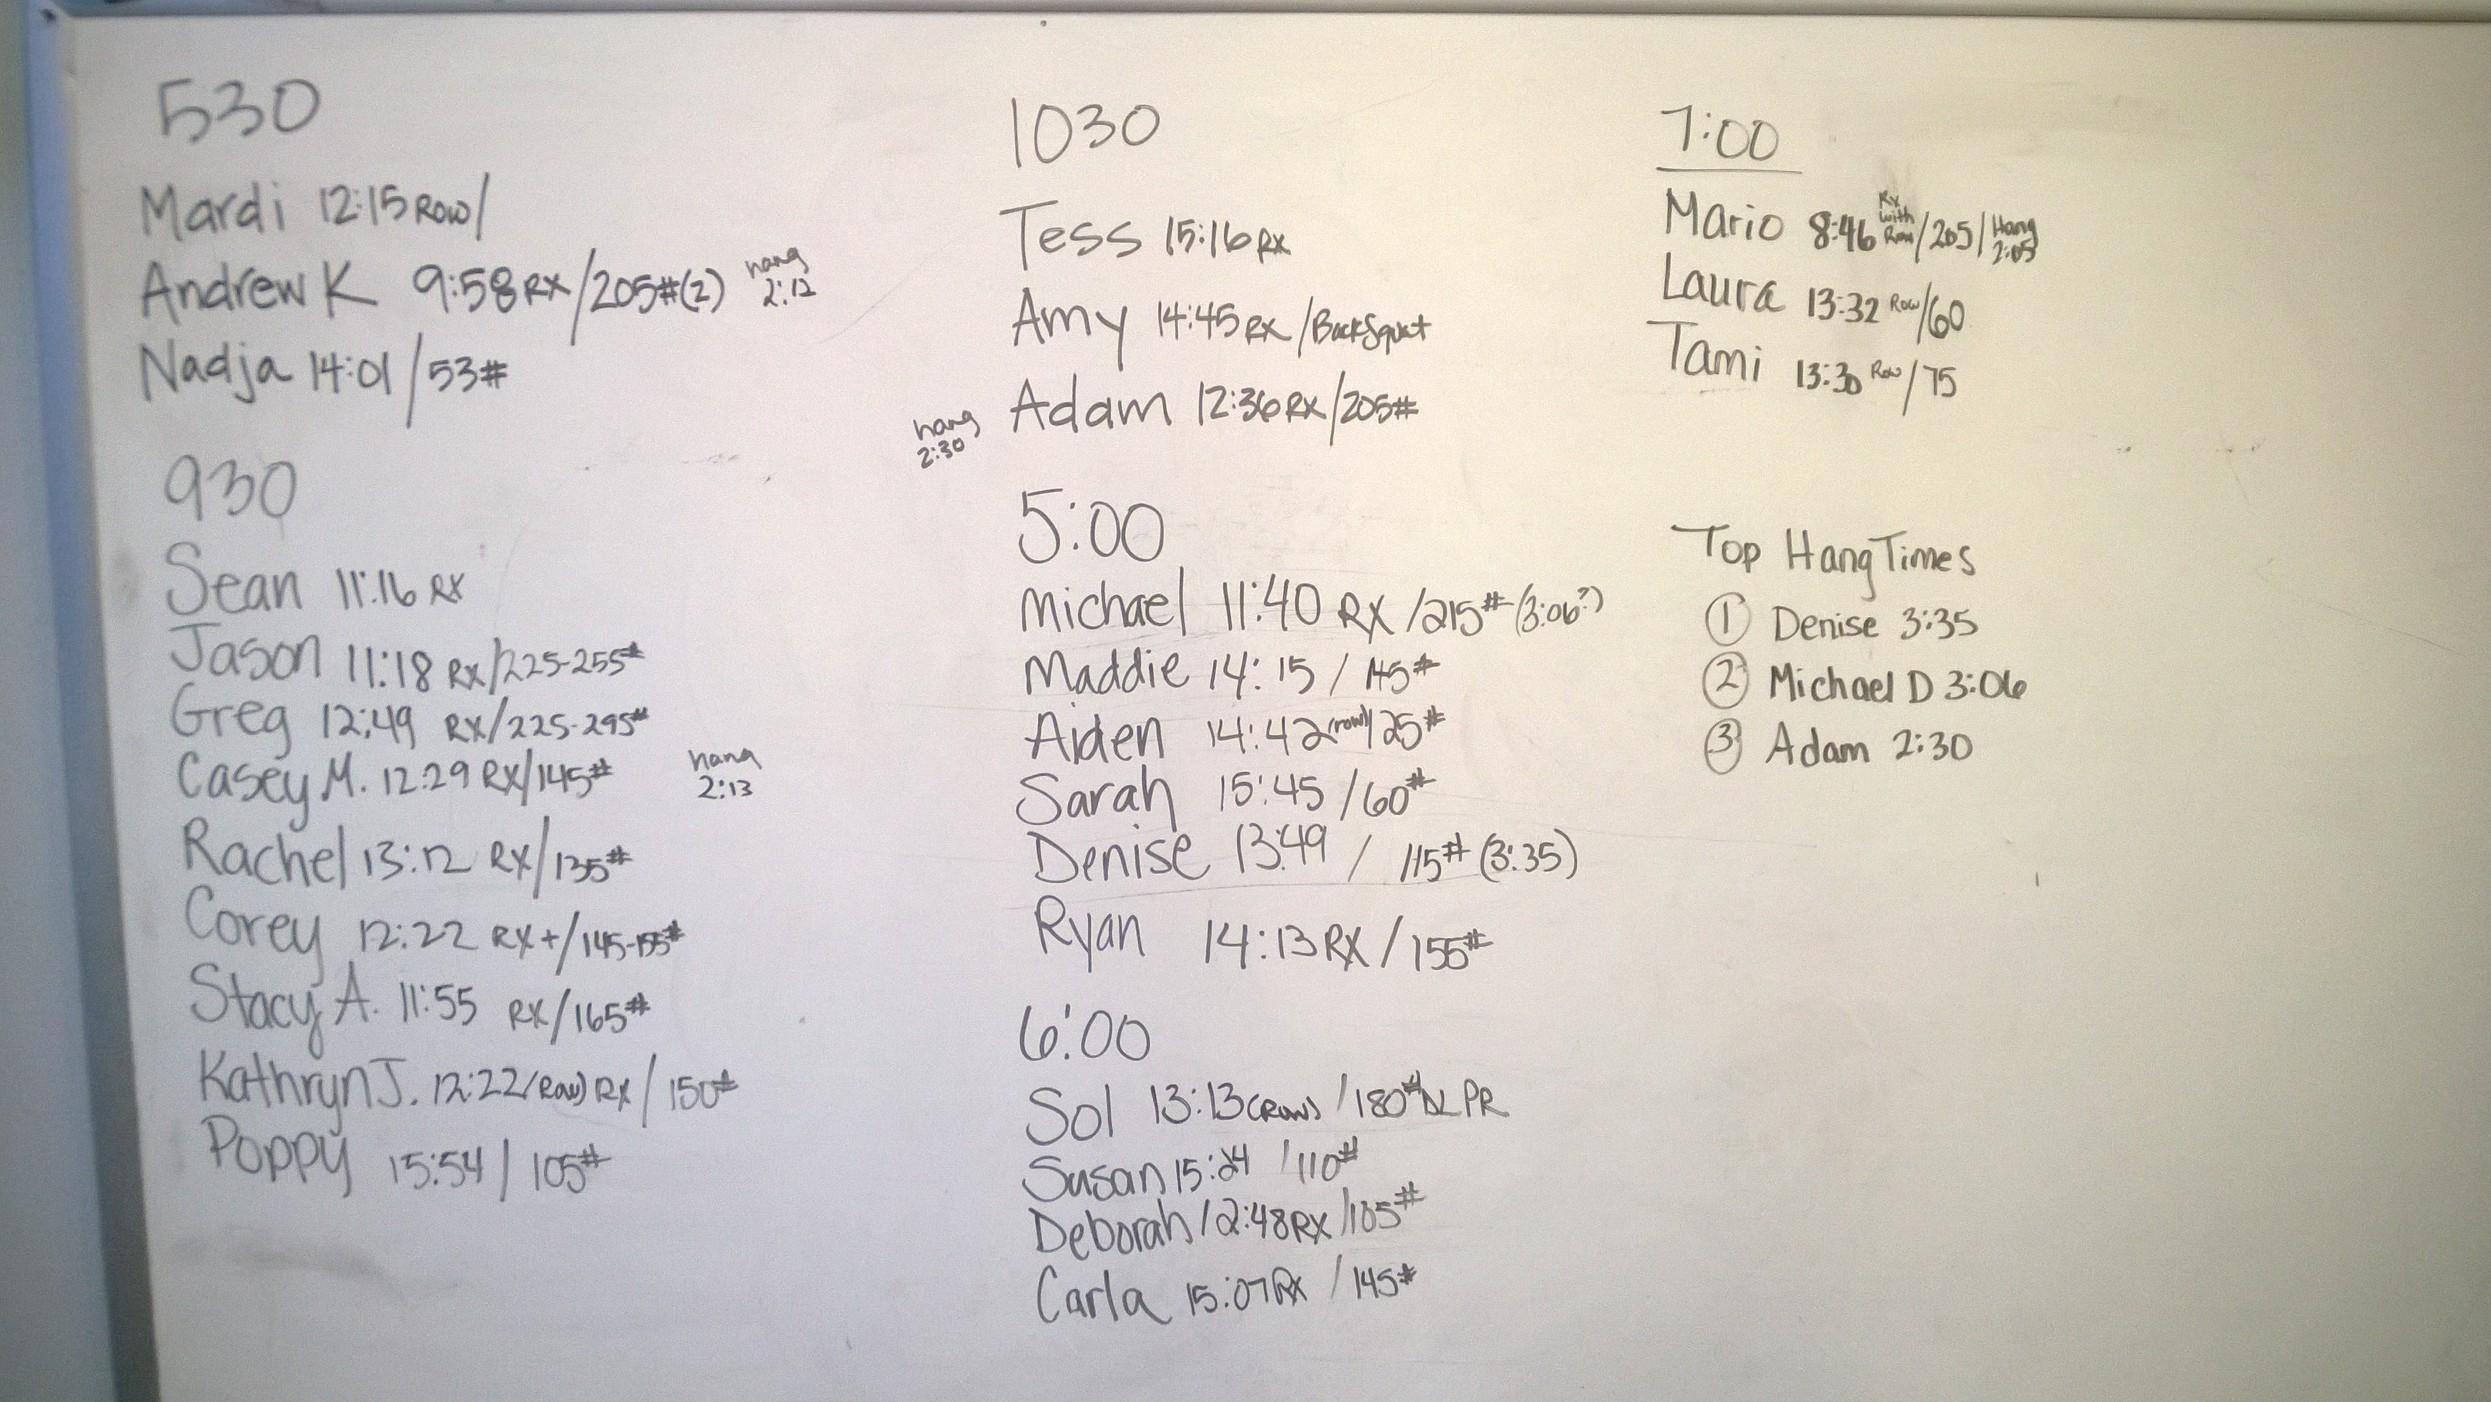 530
Mardi 12:15 Row/
Andrew K 9:58 RX/205#(2) hang 2:12
Nadja 14:01/53#
930
Sean 11:16 RX
Jason 11:18 RX/225-255#
Greg 12:49 RX/225-295#
Casey M. 12:29 RX/145# hang 2:13
Rachel 13:12 RX/135#
Corey 12:22 RX+/145-155#
Stacy A. 11:55 RX/165#
Kathryn J. 12:22(Row) RX/150#
Poppy 15:54/105#
1030
Tess 15:16 RX
Amy 14:45 RX/BackSquat
hang 2:30 Adam 12:36 RX/205#
5:00
Michael 11:40 RX/215# (3:06?)
Maddie 14:15/115#
Aiden 14:42(row)/25#
Sarah 15:45/60#
Denise 13:49/115# (3:35)
Ryan 14:13 RX/155#
6:00
Sol 13:13(ROW)/180# DL PR
Susan 15:24/110#
Deborah 12:48 RX/105#
Carla 15:07 RX/145#
7:00
Mario 8:46 Rx with Row/205/Hang 2:05
Laura 13:32 Row/60
Tami 13:30 Row/75
Top Hang Times
① Denise 3:35
② Michael D 3:06
③ Adam 2:30